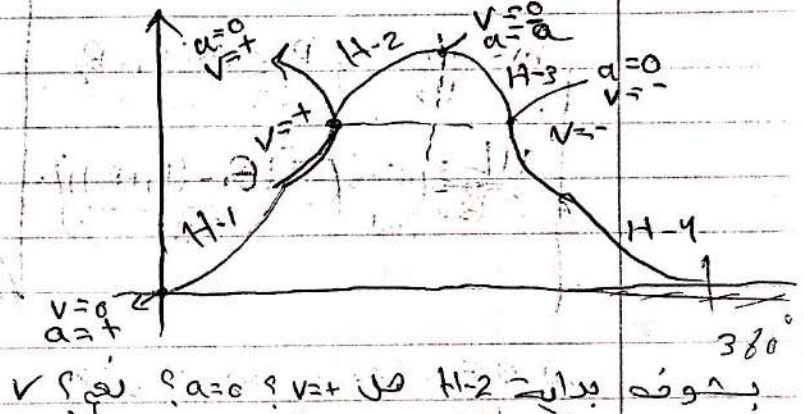 a=0
v=+
H-2
v=0
a=-a
H-3
a=0
v=-
v=+
v=-
H-1
H-4
v=0
a=+
360°
بشوف بداية H-2 هل v=+ ؟ a=0 ؟ نعم ؟ √